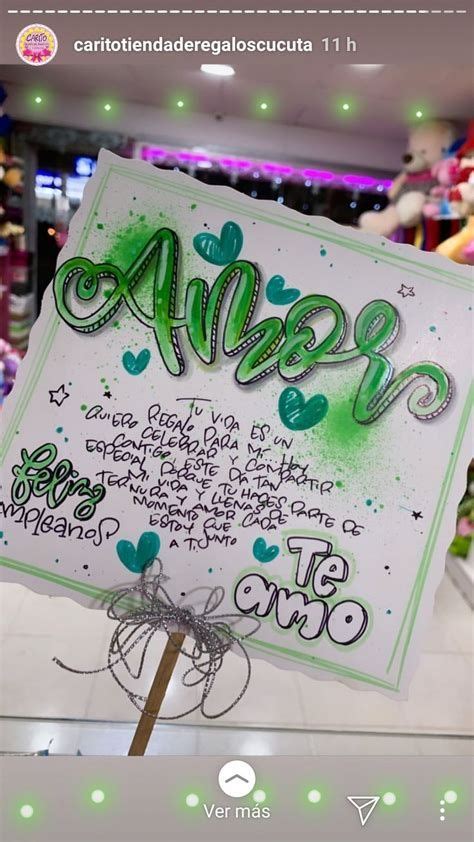 CARITO
caritotiendaderegaloscucuta 11 h
Amor
TU VIDA ES UN
REGALO PARA MI HOY
QUIERO CELEBRAR Y COMPARTIR
CONTIGO ESTE DIA TAN
ESPECIAL PORQUE TU HACES PARTE DE
MI VIDA Y LLENAS DE
TERNURA Y AMOR CADA
MOMENTO QUE
ESTOY JUNTO
A TI
Feliz
Te
amo
Ver más